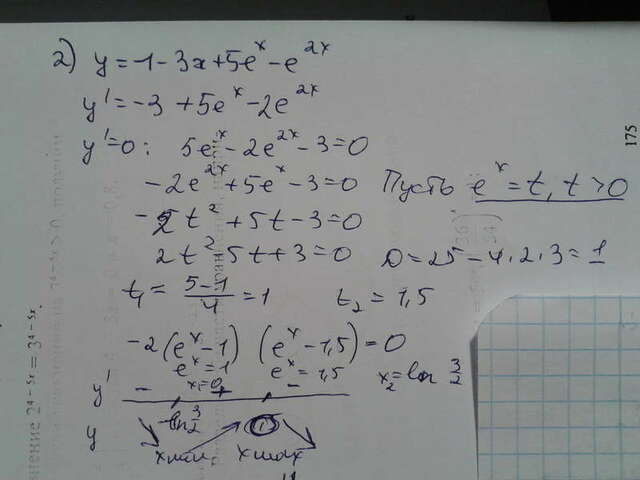 2) y = -1 - 3x + 5e^x - e^{2x}
y' = -3 + 5e^x - 2e^{2x}
y' = 0 : 5e^x - 2e^{2x} - 3 = 0
-2e^{2x} + 5e^x - 3 = 0 Пусть e^x = t, t > 0
-2t^2 + 5t - 3 = 0
2t^2 5t + 3 = 0 D = 25 - 4 · 2 · 3 = 1
t_1 = \frac{5-1}{4} = 1 t_2 = 1,5
-2 (e^x - 1) (e^x - 1,5) = 0
e^x = 1 e^x = 1,5 x_2 = ln \frac{3}{2}
x_1 = 0
y' - + -
-ln \frac{3}{2}
y
x min x max
175